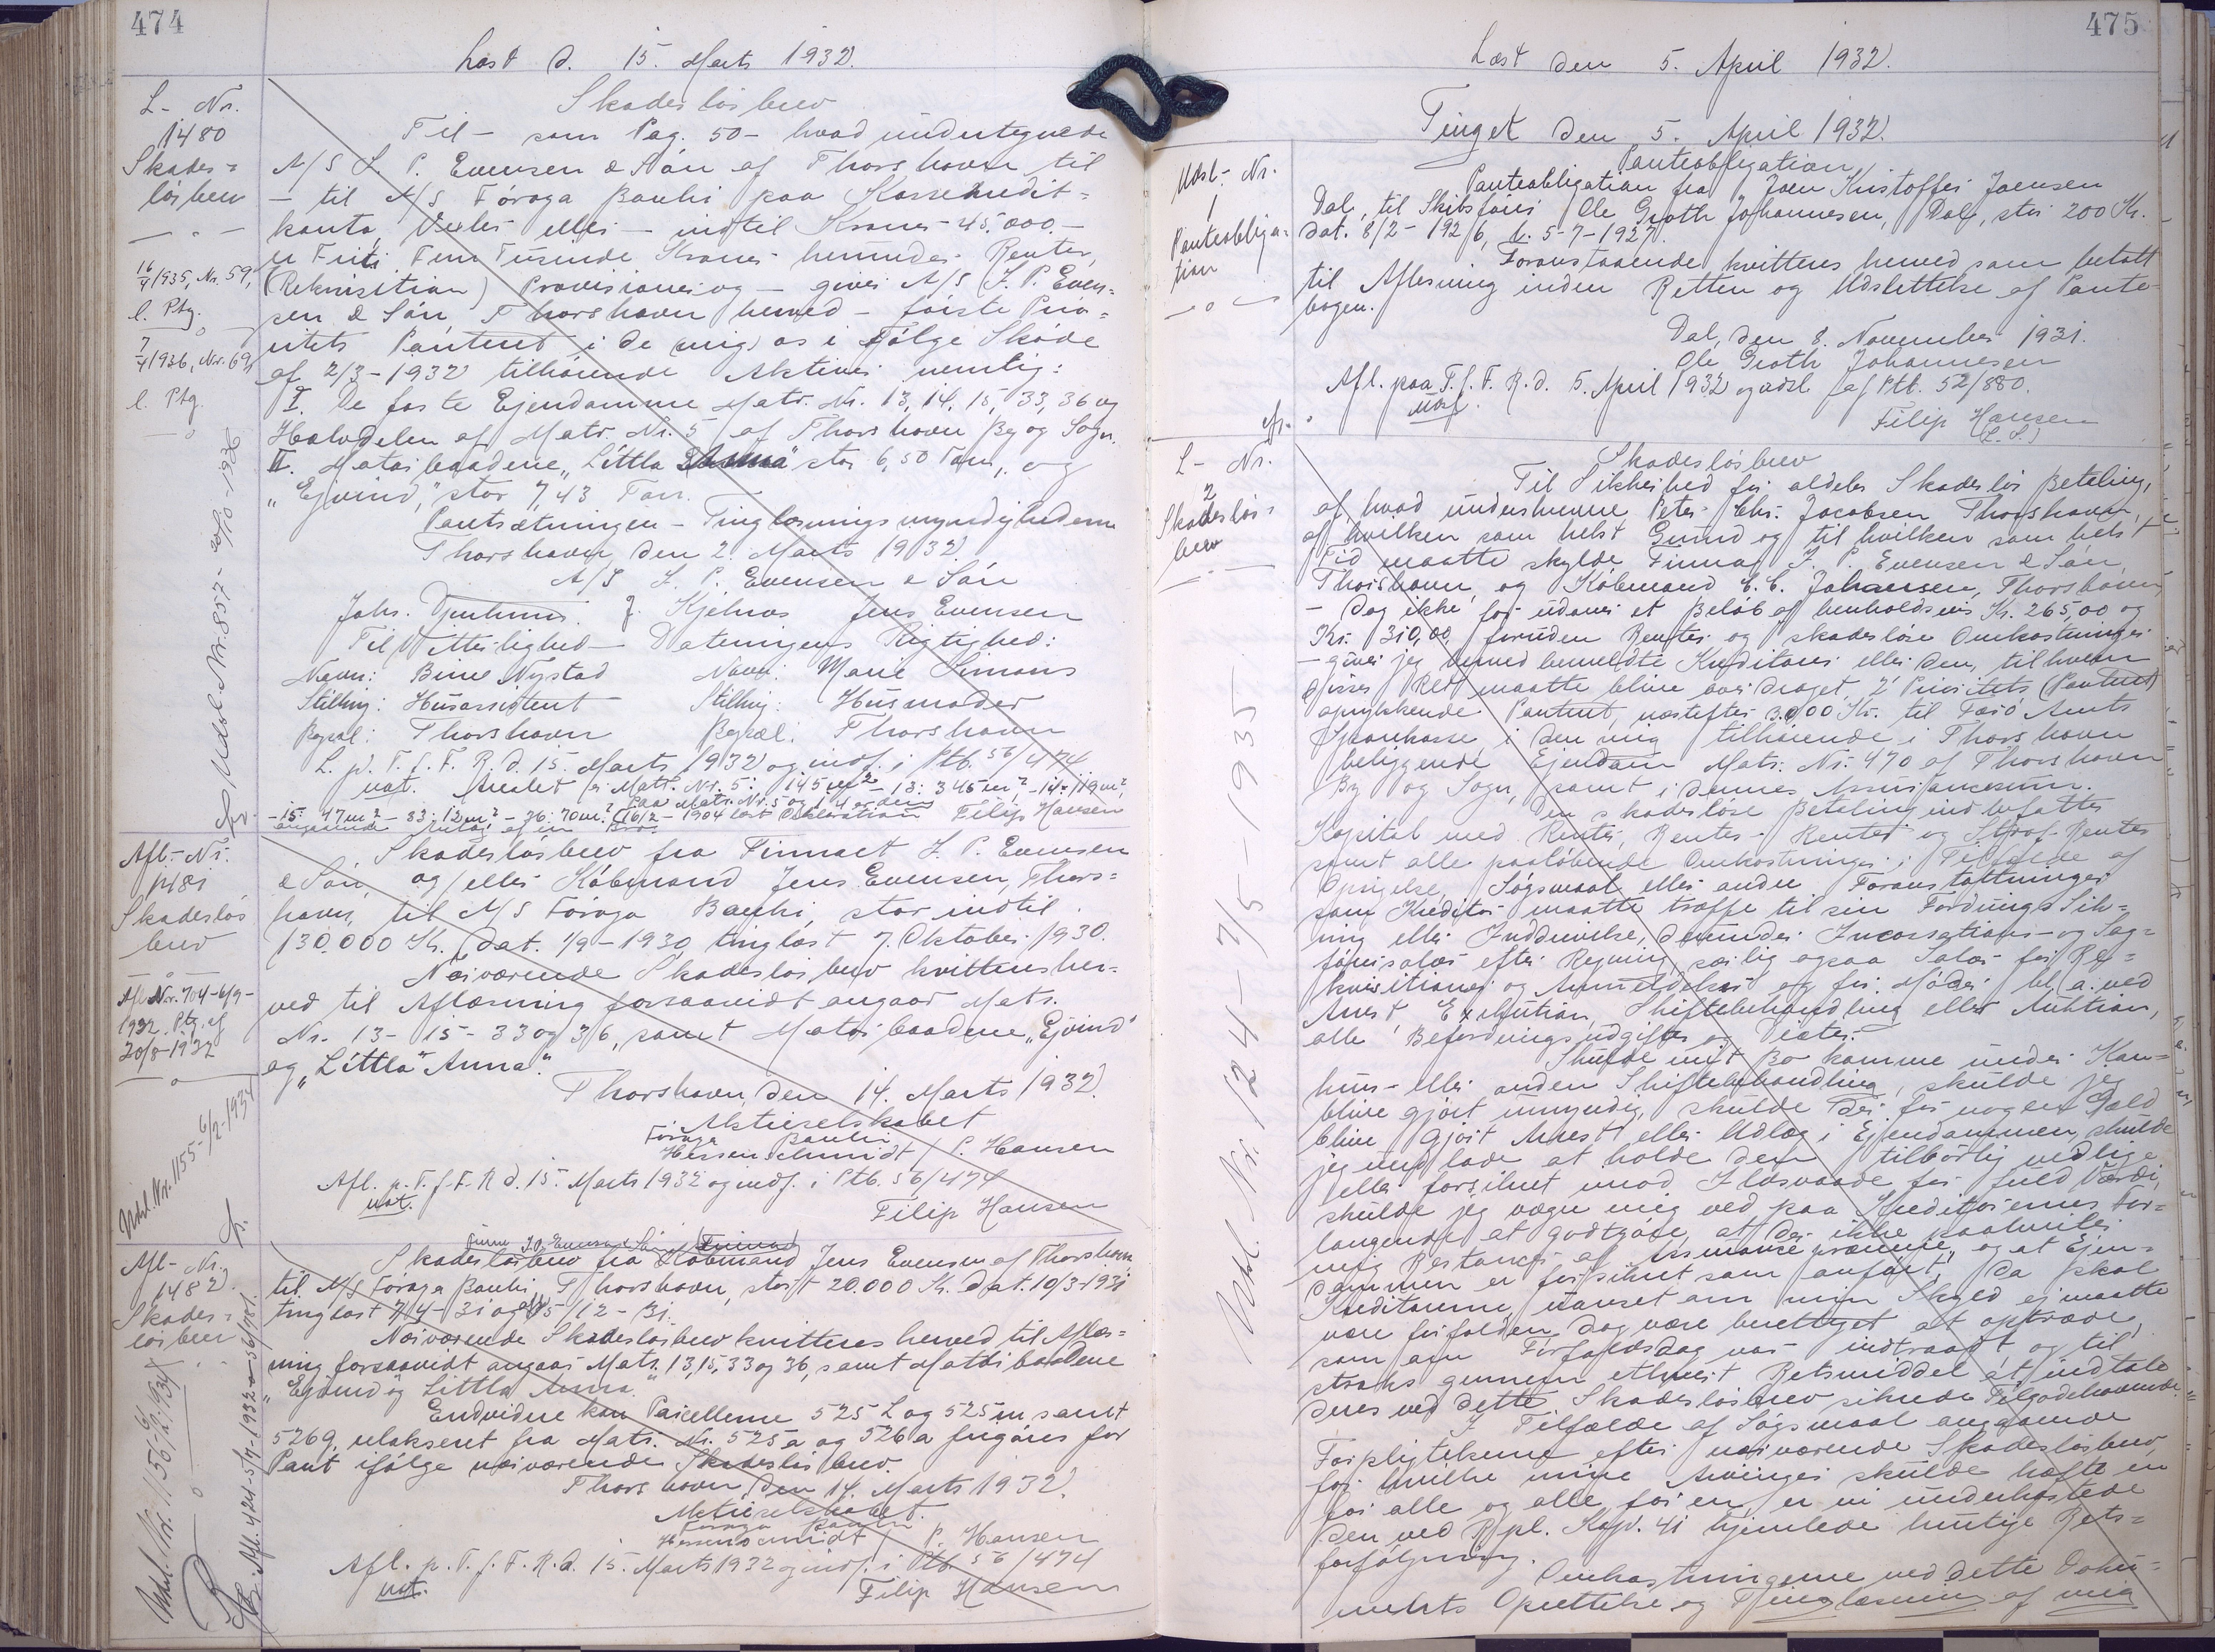 474
Læst d. 15. Marts 1932.
L- Nr.
1480
Skades=
løsbrev
16/4 1935, Nr. 59,
l. Ptg.
7/4 1936, Nr. 69,
l. Ptg.
Udsl. Nr. 857 - 20/10-1936
Skadesløsbrev
Til - som Pag. 50 - hvad undertegnede
A/S J. P. Evensen & Sön af Thorshavn til
- til A/S Föroya Banki paa Kassekredit=
konto, Veksler eller - indtil Kroner 45,000.-
er Firti Fem Tusinde Kroner herunder Renter,
(Rekvisition) Provisioner og - giver A/S J. P. Even=
sen & Sön Thorshavn herved - förste Prio=
ritets Panteret i de (mig) os i Fölge Sköde
af 2/3-1932 tilhörende Aktiver nemlig:
I. De faste Ejendomme Matr. Nr. 13, 14, 15, 33, 36 og
Halvdelen af Matr. Nr. 5 af Thorshavn By og Sogn.
II. Motorbaadene "Littla Anna" stor 6,50 Ton, og
"Ejvind," stor 7,43 Ton.
Pantsætningen - Tinglæsningsmyndighederne
Thorshavn, den 2. Marts 1932.
A/S J. P. Evensen & Sön
Johs. J. Kjelnæs Jens Evensen
Til Vitterlighed - Dateringens Rigtighed:
Navn: Bine Nystad Navn: Marie Simons
Stilling: Husassistent Stilling: Husmoder
Bopæl: Thorshavn Bopæl: Thorshavn
L. p. T. f. F. R. d. 15. Marts 1932 og indf. i Ptb. 56/474
not. Arealet er Matr. Nr. 5: 145 m² - 13: 345 m² - 14: 119 m²,
- 15: 47 m² - 33: 12 m² - 36: 70 m². Paa Matr. Nr. 5 og 14 er den
16/2-1904 læst Deklaration Filip Hansen
angaaende
Afl.- Nr.
1481
Skadesløs
brev
Afl. Nr. 704-6/9-
1932. Ptg. af
30/8-1932
Udsl. Nr. 1155-6/2-1934
Skadesløsbrev fra Firmaet J. P. Evensen
& Sön, og/eller Köbmand Jens Evensen, Thors=
havn, til A/S Föroya Banki, stor indtil
130,000 Kr. Dat. 1/9-1930, tinglæst 7. Oktober 1930.
Nærværende Skadesløsbrev kvitteres her=
ved til Aflæsning forsaavidt angaar Matr.
Nr. 13- 15- 33 og 36, samt Motorbaadene "Ejvind"
og "Littla Anna".
Thorshavn, den 14. Marts 1932.
Aktieselskabet
Föroya Banki
Hessenschmidt / P. Hansen
Afl. p. T. f. F. R d. 15. Marts 1932 og indf. i Ptb. 56/474
not.
Filip Hansen
Afl- Nr.
1482
Skades=
løsbrev
Udsl. Nr. 1156 6/2-1934
Firma J. P. Evensen & Sön
Skadesløsbrev fra Köbmand Jens Evensen af Thorshavn
til A/S Föroya Banki Thorshavn, stort 20.000 Kr. dat. 10/3-1931
tinglæst 7/4-31 og 15/12-31.
Nærværende Skadesløsbrev kvitteres herved til Aflæs=
ning forsaavidt angaar Matr. 13, 15, 33 og 36, samt Motorbaadene
"Ejvind og Littla Anna."
Endvidere kan Parcellerne 525 l og 525 m samt
526 g, udskilt fra Matr. Nr. 525 a og 526 a frigöres for
Pant ifölge nærværende Skadesløsbrev.
Thorshavn, den 14. Marts 1932.
Aktieselskabet
Föroya Banki
Hessenschmidt / P. Hansen
Afl. p. T. f. F. R. d. 15. Marts 1932 og indf. i Ptb. 56/474
not.
Filip Hansen
475
Læst den 5. April 1932.
Tinget den 5. April 1932.
Udsl- Nr.
1
Panteobliga=
tion
Panteobligation
Panteobligation fra Joen Kristoffer Joensen
Dal, til Skibsförer Ole Groth Johannesen, Dal, stor 200 Kr.
dat. 8/2-1926, l. 5-7-1927.
Foranstaaende kvitteres herved som betalt
til Aflæsning inden Retten og Udslettelse af Pante
bogen.
Dal, den 8. November 1931.
Ole Groth Johannesen
Afl. paa T. f. F. R. d. 5. April 1932 og udsl. af Ptb. 52/880.
Udsl.
Filip Hansen
(L. S.)
L- Nr.
2
Skadesløs=
brev
Udsl. Nr. 124 - 7/5 - 1935
Skadesløsbrev
Til Sikkerhed for aldeles Skadesløs Betaling,
af, hvad underskrevne Peter Chr. Jacobsen Thorshavn,
af hvilken som helst Grund og til hvilken som helst
Tid maatte skylde Firma J. P. Evensen & Sön,
Thorshavn, og Köbmand C. C. Johansen, Thorshavn
- Dog ikke for udover et Belöb af henholdsvis Kr. 265,00 og
Kr. 310,00 foruden Renter og skadeslöse Omkostninger
- giver jeg herved bemeldte Kreditorer eller den, til hvem
disses Ret maatte blive overdraget, 2' Prioritets (Panteret)
oprykkende Panteret, næstefter 3000 Kr. til Færö Amts
Sparekasse, i den mig tilhörende i Thorshavn
beliggende Ejendom Matr. Nr. 470 af Thorshavn
By og Sogn, samt i dennes Assurancesum.
Den skadeslöse Betaling indbefatter
Kapital med Renter, Renters Renter og Straf-Renter
samt alle paalöbende Omkostninger i Tilfælde af
Opsigelse, Sögsmaal eller andre Foranstaltninger
som Kreditor maatte træffe til sin Fordrings Sik=
ring eller Inddrivelse, derunder Incassations- og Sag=
förersalær efter Regning særlig ogsaa Salær for Re=
kvisitioner og Anmeldelser og for Möder bl. a. ved
Arrest Exekution, Skiftebehandling eller Auktion,
alle Befordringsudgifter og Diæter.
Skulde mit Bo komme under Kon=
kurs- eller anden Skiftebehandling, skulde jeg
blive gjort umyndig, skulde der for nogen Gæld
blive gjort Arrest eller Udlæg i Ejendommen, skulde
jeg undlade at holde den tilbörlig vedlige
eller forsikret imod Ildsvaade for fuld Værdi,
skulde jeg vægre mig ved paa Kreditorernes For=
langende at godtgöre, at der ikke paahviler
mig Restancer af Assurance præmie, og at Ejen=
dommen er forsikret som anfört, da skal
Kreditorerne, uanset om min Skyld ej maatte
være forfalden, dog være berettiget at optræde,
som om Forfaldsdag var indtraadt og til
straks gennem ethvert Retsmiddel at indtale
deres ved dette Skadesløsbrev sikrede Tilgodehavende.
I Tilfælde af Sögsmaal angaaende
Forpligtelserne efter nærværende Skadesløsbrev,
for hvilke mine Arvinger skulde hæfte en
for alle og alle for en, er vi underkastede
den ved Rpl. Kap. 41 hjemlede hurtige Rets=
forfölgning.
Omkostningerne ved dette Doku=
ments Oprettelse og Tinglæsning af mig